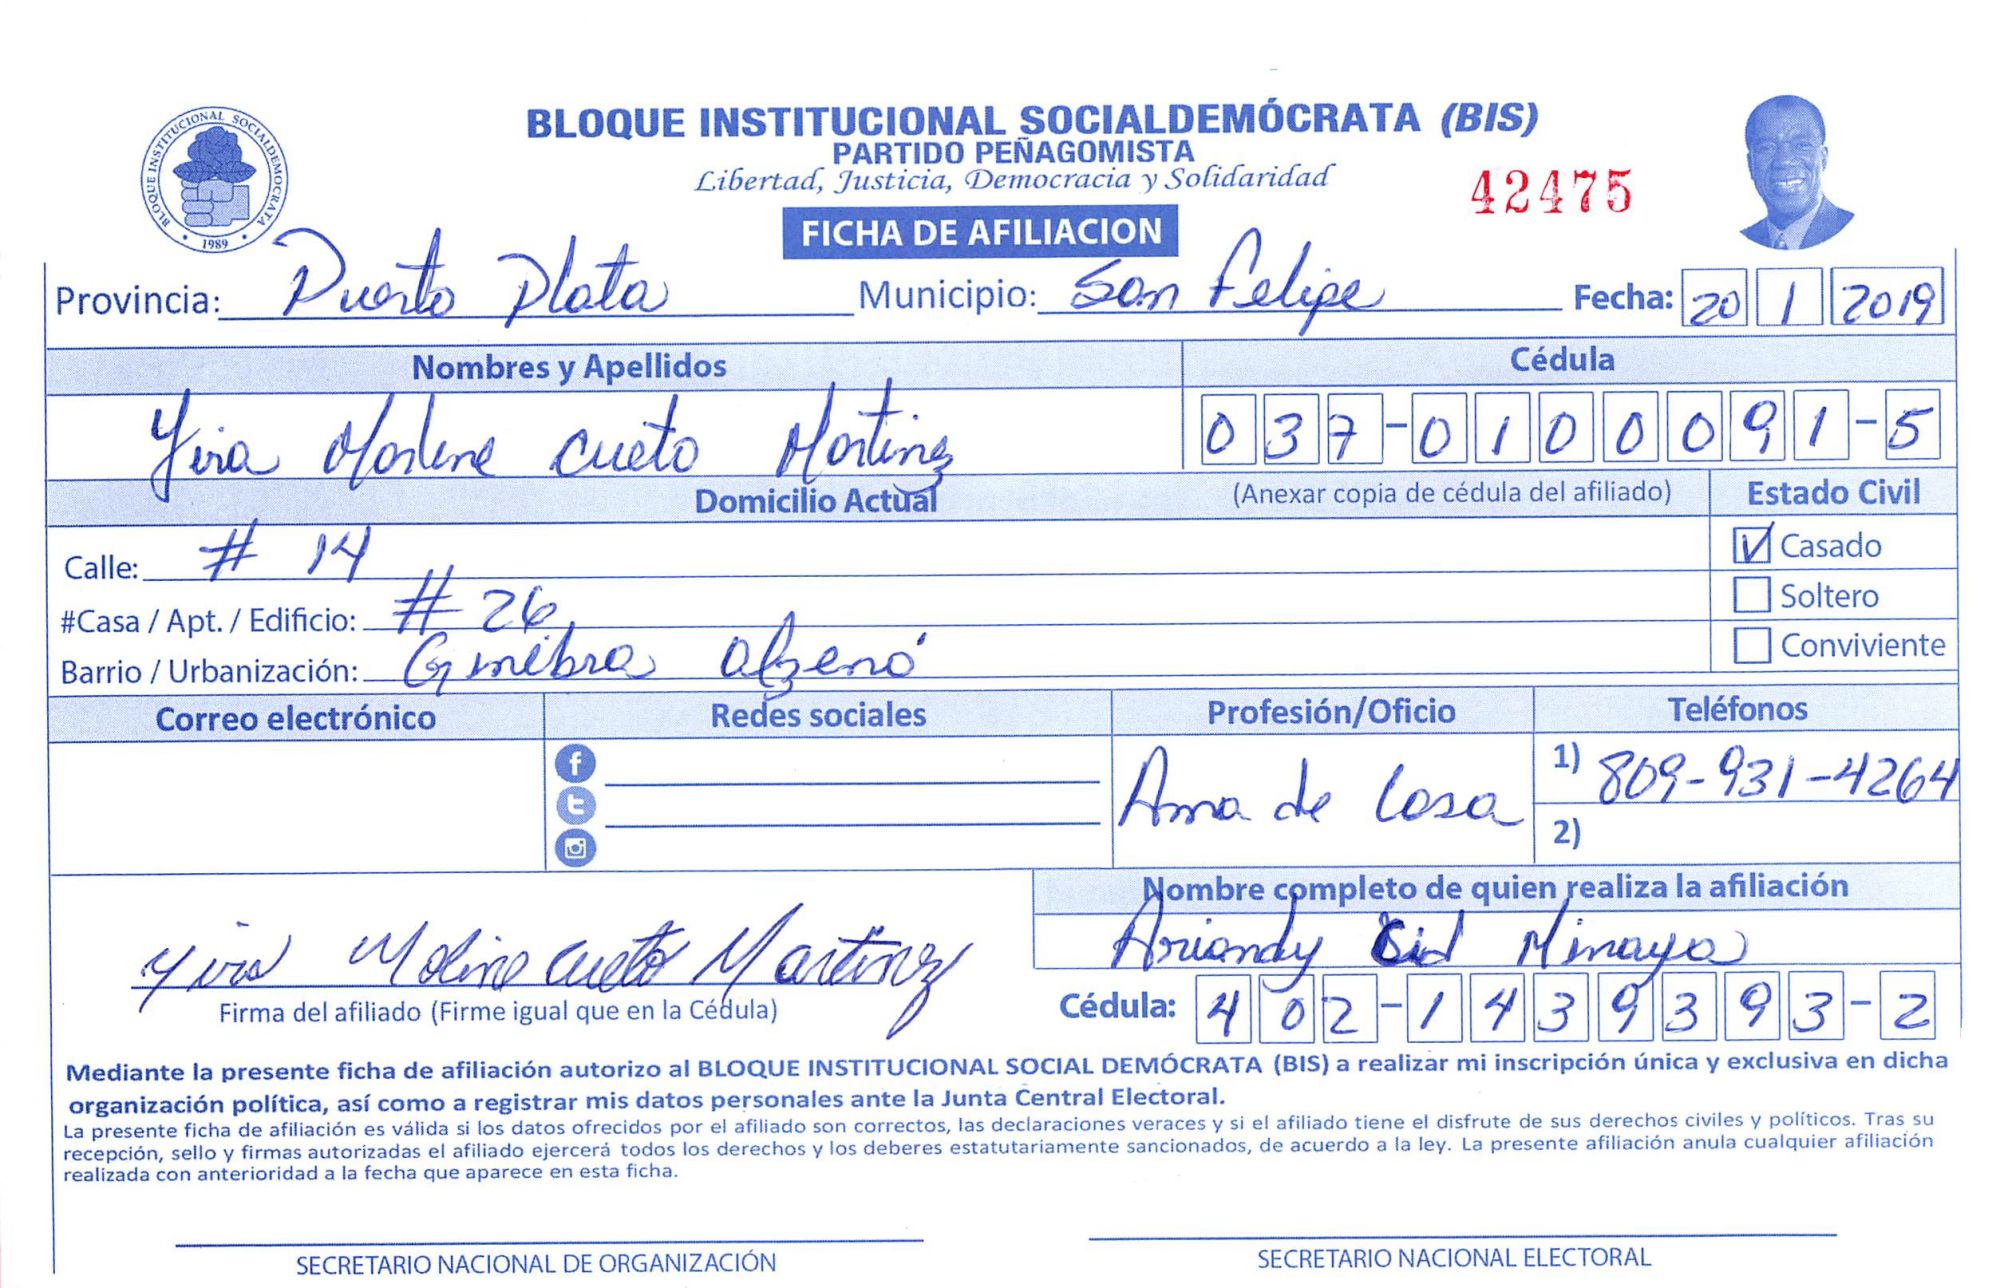 BLOQUE INSTITUCIONAL SOCIALDEMOCRATA
1989
BLOQUE INSTITUCIONAL SOCIALDEMÓCRATA (BIS)
PARTIDO PEÑAGOMISTA
Libertad, Justicia, Democracia y Solidaridad
42475
FICHA DE AFILIACION
Provincia: Puerto Plata Municipio: San Felipe Fecha: 20 1 2019
Nombres y Apellidos Cédula
Yira Marlene Cueto Martinez 037-0100091-5
Domicilio Actual (Anexar copia de cédula del afiliado) Estado Civil
Calle: # 14 Casado
#Casa / Apt. / Edificio: # 26 Soltero
Barrio / Urbanización: Ginebra Conviviente
Correo electrónico Redes sociales Profesión/Oficio Teléfonos
Ama de Casa 1) 809-931-4264
2)
Nombre completo de quien realiza la afiliación
Ariandy Cid Minaya
Yira Cueto Martinez
Firma del afiliado (Firme igual que en la Cédula) Cédula: 402-1439393-2
Mediante la presente ficha de afiliación autorizo al BLOQUE INSTITUCIONAL SOCIAL DEMÓCRATA (BIS) a realizar mi inscripción única y exclusiva en dicha
organización política, así como a registrar mis datos personales ante la Junta Central Electoral.
La presente ficha de afiliación es válida si los datos ofrecidos por el afiliado son correctos, las declaraciones veraces y si el afiliado tiene el disfrute de sus derechos civiles y políticos. Tras su
recepción, sello y firmas autorizadas el afiliado ejercerá todos los derechos y los deberes estatutariamente sancionados, de acuerdo a la ley. La presente afiliación anula cualquier afiliación
realizada con anterioridad a la fecha que aparece en esta ficha.
SECRETARIO NACIONAL DE ORGANIZACIÓN SECRETARIO NACIONAL ELECTORAL